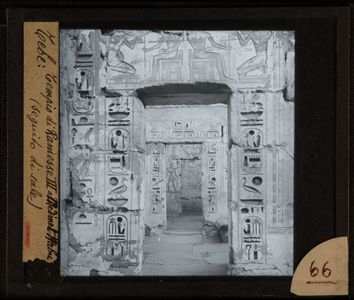 Tebe: Tempio di Ramesse III a Medinet Habu
(seguito di sale)
66